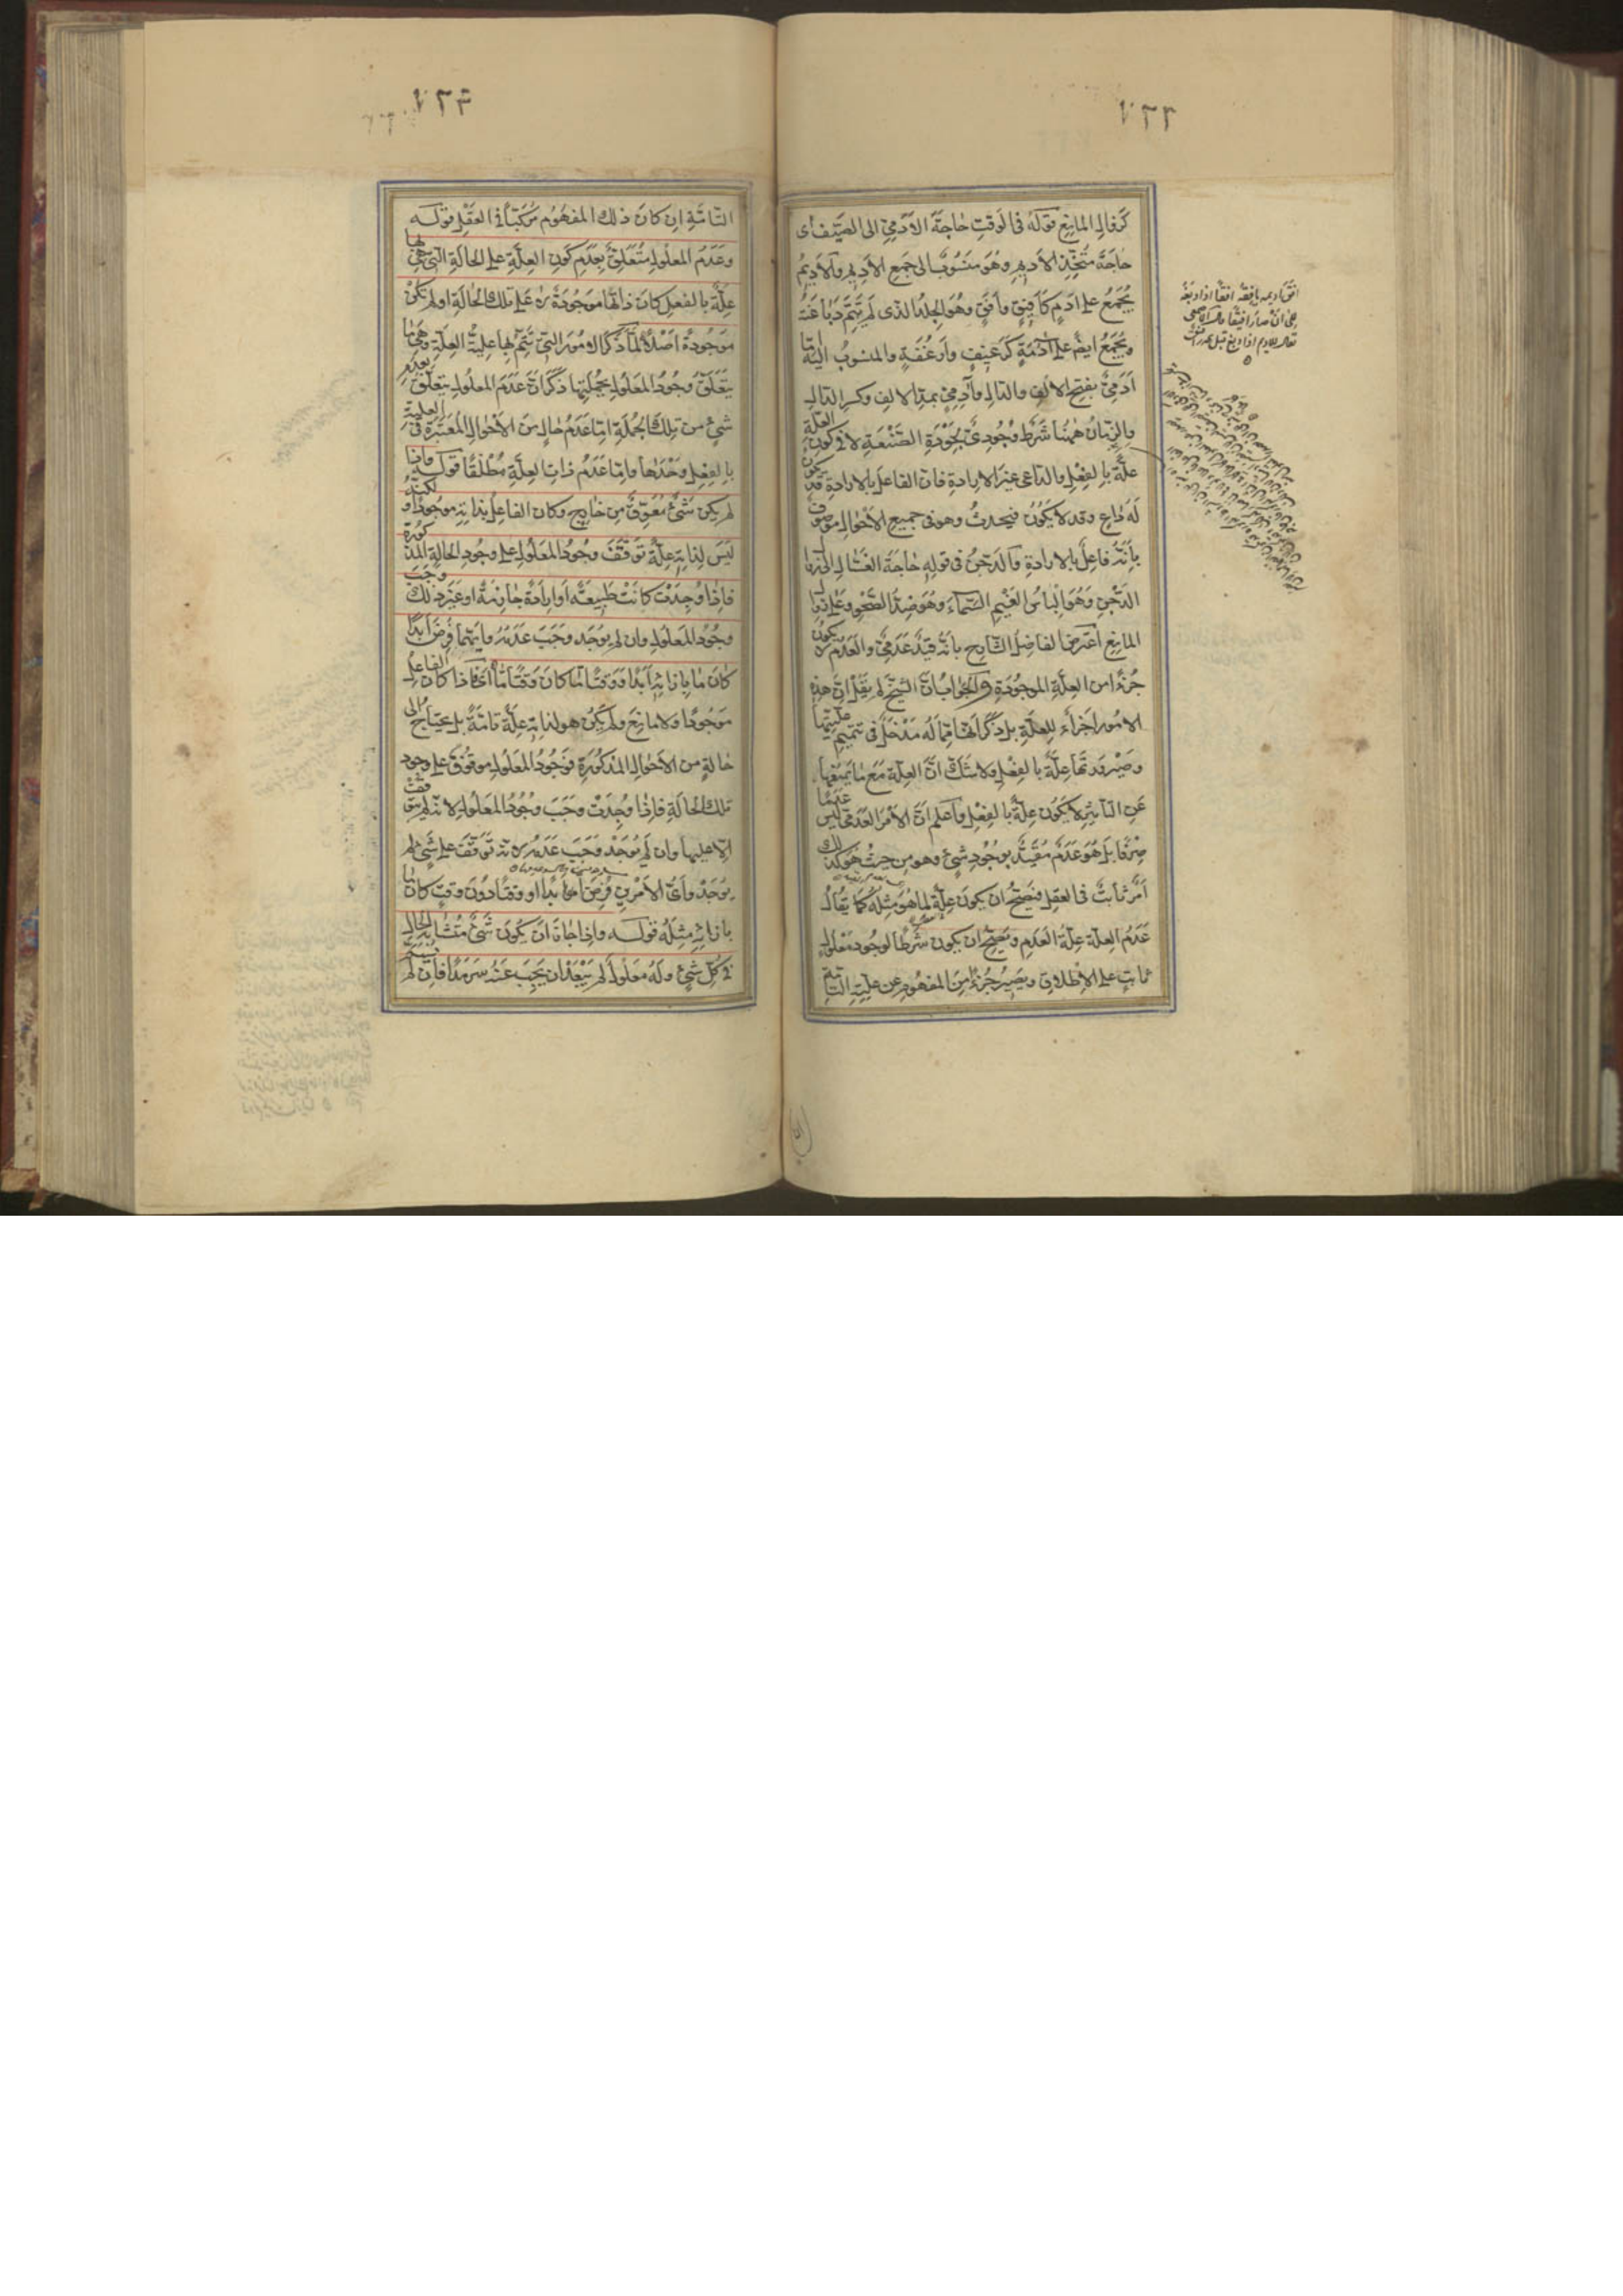 ٧٣٣
كزوال المانع قوله فى الوقت حاجة الآدمى الى الصيف اى
حاجة متخذ الاديم وهو منسوب الى جمع الاديم والاديم
يجمع على ادم كافيق وافق وهو الجلد الذى لم يتم دباغته
ويجمع ايضا على آدمة كرغيف وارغفة والمنسوب اليهما
ادمى بفتح الالف والدال وآدمى بمد الالف وكسر الدال
والزمان ههنا شرط وجودى لجودة الصنعة لا فى كون العلة
علة بالفعل والداعى غير الارادة فان الفاعل بالارادة قد يكون
له داع وقد لا يكون فيحدث وهو فى جميع الاحوال موصوف
بانه فاعل بالارادة والدجن فى قوله حاجة الغسال الى زوال
الدجن وهو الباس الغيم السماء وهو ضد الصحو وعلى زوال
المانع اعترض الفاضل الشارح بانه قيد عدمى والعدم لا يكون
جزءا من العلة الموجودة والجواب ان الشيخ لم يقل ان هذه
الامور اجزاء للعلة بل ذكر انها مما له مدخل فى تتميم عليتها
وصيرورتها علة بالفعل ولا شك ان العلة مع ما يمنعها
عن التاثير لا يكون علة بالفعل واعلم ان الامر العدمى ليس عدما
صرفا بل هو عدم مقيد بوجود شىء وهو من حيث هو كذلك
امر ثابت فى العقل فيصح ان يكون علة لما هو مثله كما يقال
عدم العلة علة العدم ويصح ان يكون شرطا لوجود معلول
ثابت على الاطلاق ويصير جزءا من المفهوم عن علته التامة
٧٣٤
التامة ان كان ذلك المفهوم مركبا فى العقل قوله
وعدم المعلول متعلق بعدم كون العلة على الحالة التى هى بها
علة بالفعل كان ذاتها موجودة لا على تلك الحالة او لم تكن
موجودة اصلا لما ذكر الامور التى تتم بها علية العلة وهى ما
يتعلق وجود المعلول بجملتها ذكر ان عدم المعلول يتعلق بعدم
شىء من تلك الجملة اما عدم حال من الاحوال المعتبرة فى العلية
بالفعل وحدها واما عدم ذات العلة مطلقا قوله فاذا
لم يكن شىء معوق من خارج وكان الفاعل بذاته موجودا ولكنه
ليس لذاته علة توقف وجود المعلول على وجود الحالة المذكورة
فاذا وجدت كانت طبيعة او ارادة جازمة او غير ذلك وجب
وجود المعلول وان لم يوجد وجب عدمه وايهما فرض ابدا
كان ما بازائه ابدا او وقتا ما كان وقتا ما اى فاذا كان الفاعل
موجودا ولا مانع ولم يكن هو لذاته علة تامة بل يحتاج الى
حالة من الاحوال المذكورة فوجود المعلول موقوف على وجود
تلك الحالة فاذا وجدت وجب وجود المعلول لانه لم يتوقف
الا عليها وان لم توجد وجب عدمه لانه توقف على شىء لم
يوجد واى الامرين فرض ابدا او وقتا دون وقت كان ما
بازائه مثله قوله واذا جاز ان يكون شىء متشابه الحال
فى كل شىء وله معلول لم يبعد ان يجب عنه سرمدا فان لم يسم